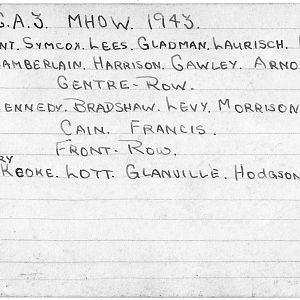 C.A.3 MHOW. 1943.
NT. SYMCOX. LEES. GLADMAN. LAURISCH.
AMBERLAIN. HARRISON. CAWLEY. ARNO
CENTRE-ROW.
ENNEDY. BRADSHAW. LEVY. MORRISON
CAIN. FRANCIS.
FRONT-ROW.
RY
KEOKE. LOTT. GLANVILLE. HODGSON